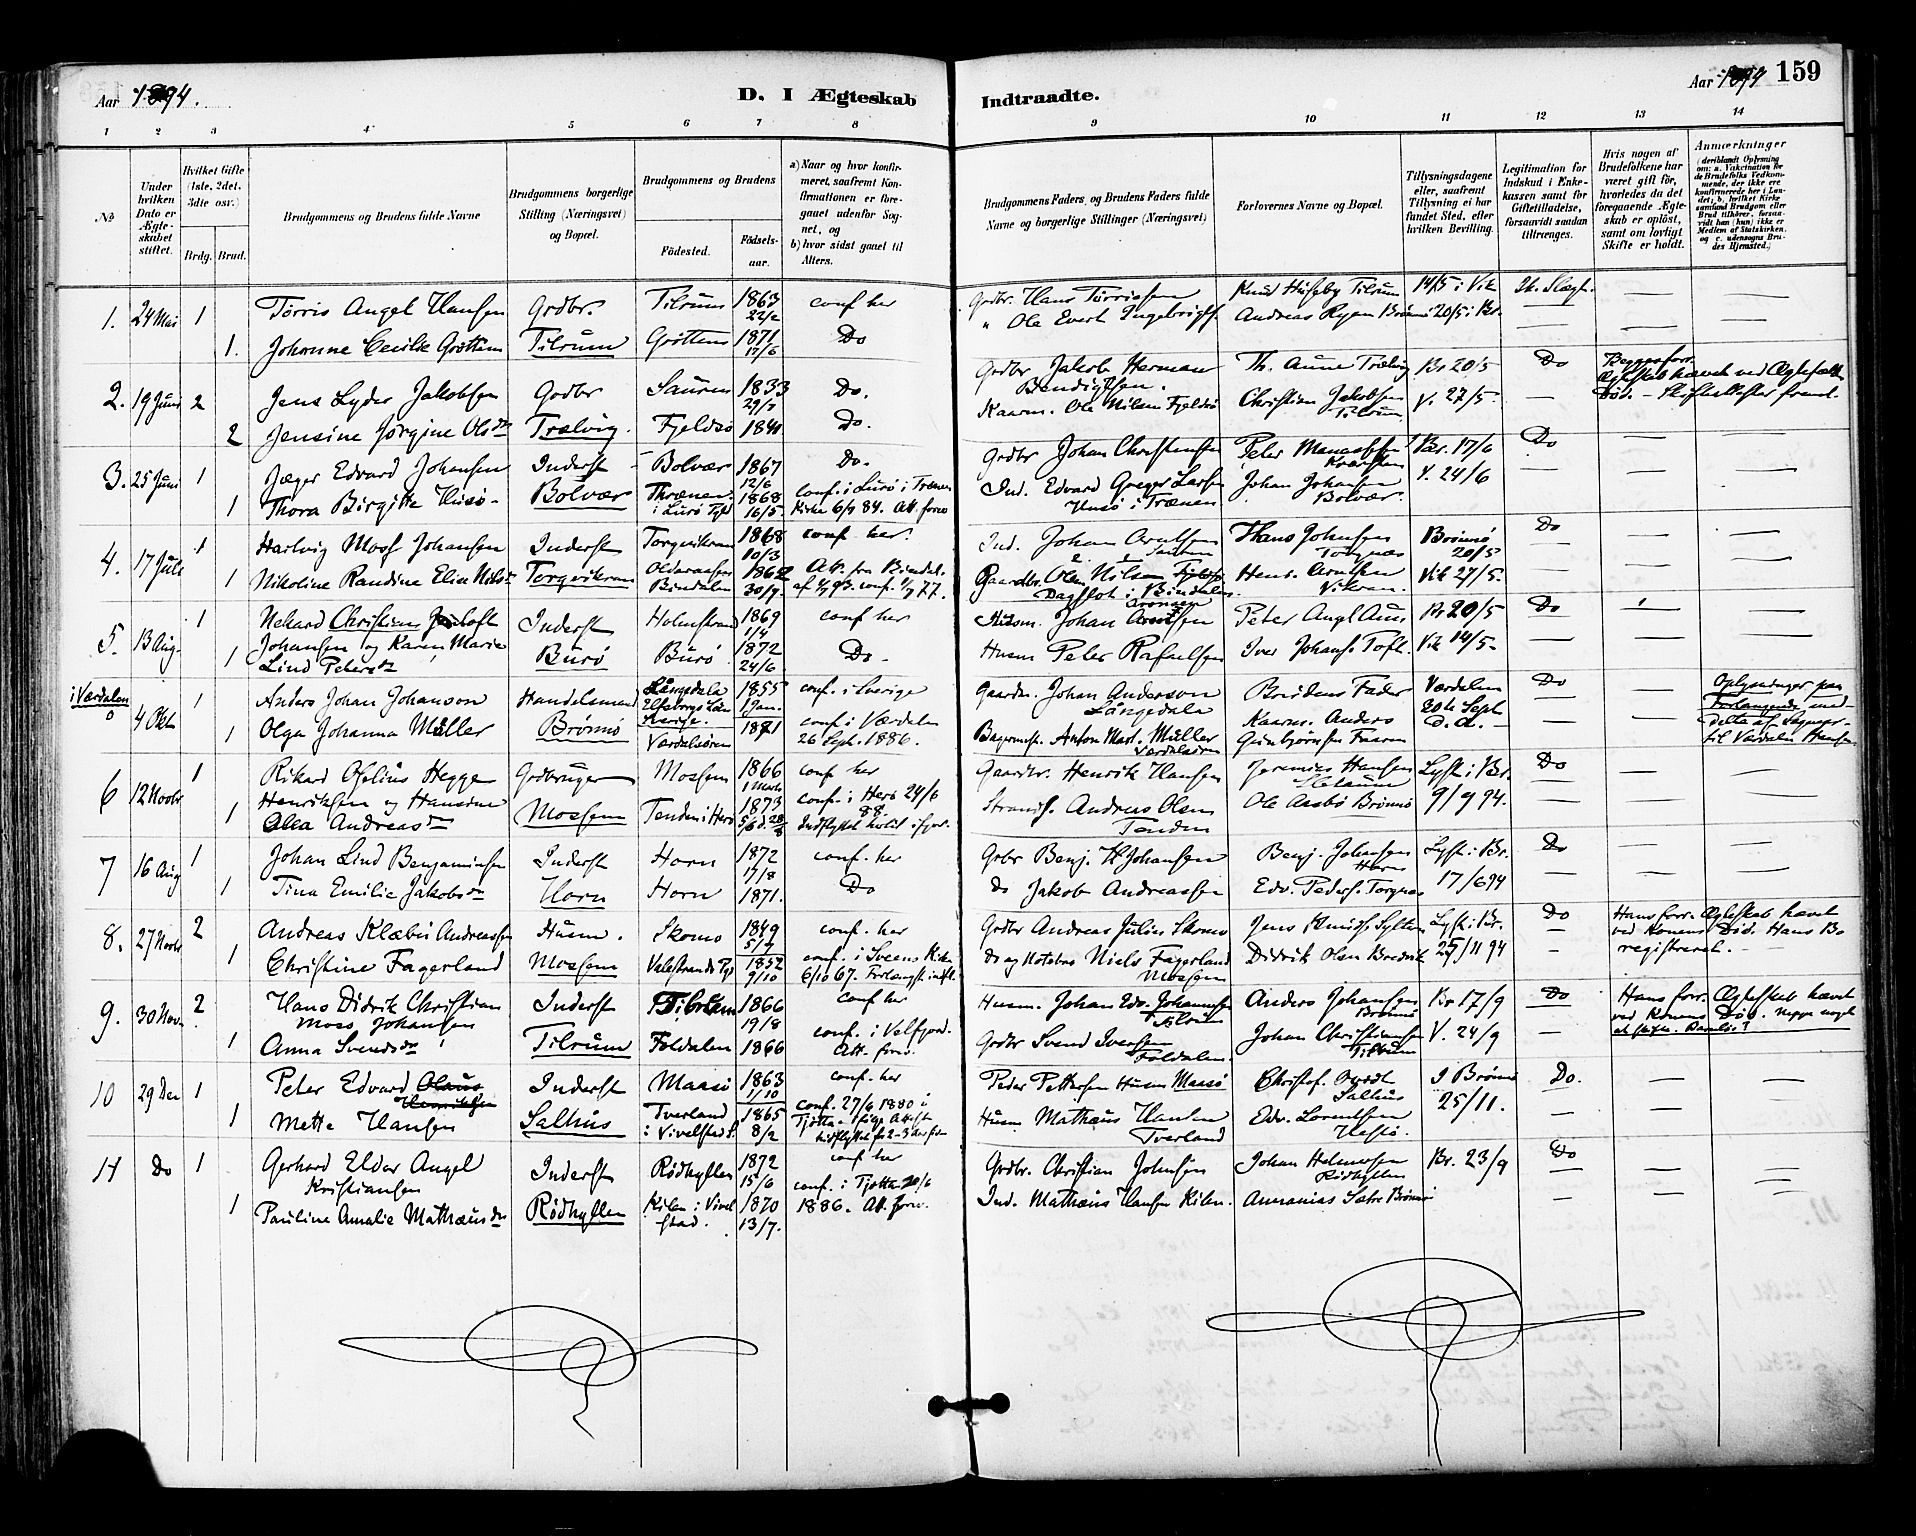 Aar 1894.
D. I Ægteskab
Indtraadte.
Aar 1894
159
1 2 3 4 5 6 7 8 9 10 11 12 13 14
No
Under hvilken Dato er Ægteskabet stiftet.
Hvilket Gifte (1ste, 2det, 3die osv.)
Brdg. Brud.
Brudgommens og Brudens fulde Navne
Brudgommens borgerlige Stilling (Næringsvei) og Bopæl.
Brudgommens og Brudens
Fødested.
Fødselsaar.
a) Naar og hvor konfirmeret, saafremt Konfirmationen er foregaaet udenfor Sognet, og
b) hvor sidst gaaet til Alters.
Brudgommens Faders, og Brudens Faders fulde Navne og borgerlige Stillinger (Næringsvei)
Forlovernes Navne og Bopæl.
Tillysningsdagene eller, saafremt Tillysning ei har fundet Sted, efter hvilken Bevilling.
Legitimation for Indskud i Enkekassen samt for Giftetilladelse, forsaavidt saadan tiltrænges.
Hvis nogen af Brudefolkene har været gift før, hvorledes da det foregaaende Ægteskab er opløst, samt om lovligt Skifte er holdt.
Anmærkninger
1. 24 Mai 1 Tørris Angel Hansen Grdbr. Tilrum 1863 22/2 conf her Grdbr. Hans Tørrissen Knud Huseby Tilrum 14/5 i Vik
1. Johanne Cecilie Grøttem Tilrum Grøttem 1871 17/6 Do " Ole Evert Ingebrigts. Andreas Ryen Brønnø 20/5 i Br.
2. 19 Juni 2 Jens Lyder Jakobsen Grdbr Sauren 1833 29/7 Do. Grdbr Jakob Herman Bendigtsen. Th. Aune Trælvig Br 20/5 Do
2 Jensine Jørgine Olsdr Trælvig. Fjeldsø Do. Kaarm. Ole Nilsen Fjeldsø Christian Jakobsen Tilrum V. 27/5.
3. 25 Juni 1 Jæger Edvard Johansen Inderst Bolvær 1867 12/6 Do. Grdbr Johan Christensen Peter Br. 17/6 Do
1 Thora Birgitte Husø Bolvær Thrænen i Lurø 1868 16/5 conf. i Lurø i Trænen Kirke 6/9 84. Att. forev Ind. Edvard Greger Larsen Husø i Trænen Johan Johansen Bolvær. V. 24/6
4. 17 Juli 1 Hartvig Moss Johansen Inderst Torgvikran 1868 10/3 conf her. Ind. Johan Arntsen Hans Johnsen Torgnæs Brønnø 20/5 Do
1 Nikoline Randine Elise Nilsdr Torgvikran Bindalen 1862 30/9. Att. fra Bindal. Gaardbr. Olai Nilsen i Bindalen. Hens. Arntsen Vikran. Vik 27/5.
5. 13 Aug. 1 Nekard Christian Johansen og Karen Marie Lind Petersdr Inderst Holmstrand 1869 1/4 conf her Husm. Johan Arntsen Peter Angl Aun Br 20/5 Do
1 Burø Burø 1872 24/6. Do. Husm Peter Rafaelsen Iver Johans. Toft. Vik 14/5
i Værdalen 0 4 Okt 1 Anders Johan Johanson Handelsmand Långedala Elfsborgs Län Sverige. 1855 1 Jan. conf. i Sverige Gaardm. Johan Anderson Långedala Brudens Fader Værdalen 30te Sept Do Oplysninger paa Forlangende meddelte af Sognepr. til Værdalen
1 Olga Johanna Müller Brønnø Værdalsøren 1871 conf. i Værdalen 26 Sept. 1886. Bagermstr. Anton Mart. Müller Værdalsøren Anders Gunbjørnsen d.d.
6 12 Novbr 1 Rikard Ofelius Hegge Henriksen og Hansine Olea Andreasdr Grdbruger Mosem 1866 conf her Gaardbr. Henrik Hansen Jeremias Hansen Lyst i Br. Do
1 Mosem Tenden i Herø 1873 conf. i Herø 24/6 88. Strands. Andreas Olsen Tenden Ole Aasbø Brønnø 9/9 94.
7 16 Aug 1 Johan Lind Benjaminsen Inderst Horn 1872 17/8 conf. her Grbr Benj. H Johansen Benj. Johansen Horn Lyst i Br. Do
1 Tina Emilie Jakobsdr Horn Horn 1871. Do do Jakob Andreassen Edv. Peders. Torgnæs 17/6 94
8. 27 Novbr 2 Andreas Klæbu Andreassen Husm. Skomo 1849 5/7 conf. her Grdbr Andreas Julius Skomo Jens Knuds. Sylten Lyst i Br. Do Hans forr. Ægteskab hævet ved Konens Død. Hans Bo registreret.
1 Christine Fagerland Mosem Valestrand 1852 9/10 conf. i Sveens Kirke 6/10 67. do og Notebas Niels Fagerland Mosem Didrik Olsen 25/11 94
9. 30 Nov. 2 Hans Didrik Christian Moss Johansen Inderst Tilrum 1866 19/8 conf her Husm. Johan Edv. Johannessen Tilrum Anders Johansen Brønnø Br 17/9 Do Hans forr. Ægteskab hævet ved Konens Død.
1 Anna Svendsdr Tilrum Foldalen 1866 conf. i Velfjord. Att. forev. Grdbr Svend Iversen Foldalen. Johan Christiansen Tilrum V. 24/9
10 29 Dec 1 Peter Edvard Olaus Henriksen Inderst Maasø 1863 1/10 conf. her Peder Pettersen Husm Maasø Christof. Salhus I Brønnø 25/11. Do.
1 Mette Hansen Salhus Tverland i Vivelstad S. 1865 8/2 conf. 27/6 1880 i Tjøtta Husm Mathæus Hansen Tverland Edv. Lorentsen Hestø.
11 Do 1 Gerhard Eldar Angel Kristiansen Inderst Rødhyllen 1872 15/6 conf her Grdbr. Christian Johnsen Johan Helmersen Rødhyllen Br. 23/9 Do
1 Pauline Amalie Mathæusdr Rødhyllen Kilen i Vivelstad. 1870 13/7. conf. i Tjøtta 20/6 1886. Att. forev. Ind. Mathæus Hansen Kilen. Annanias Brønnø